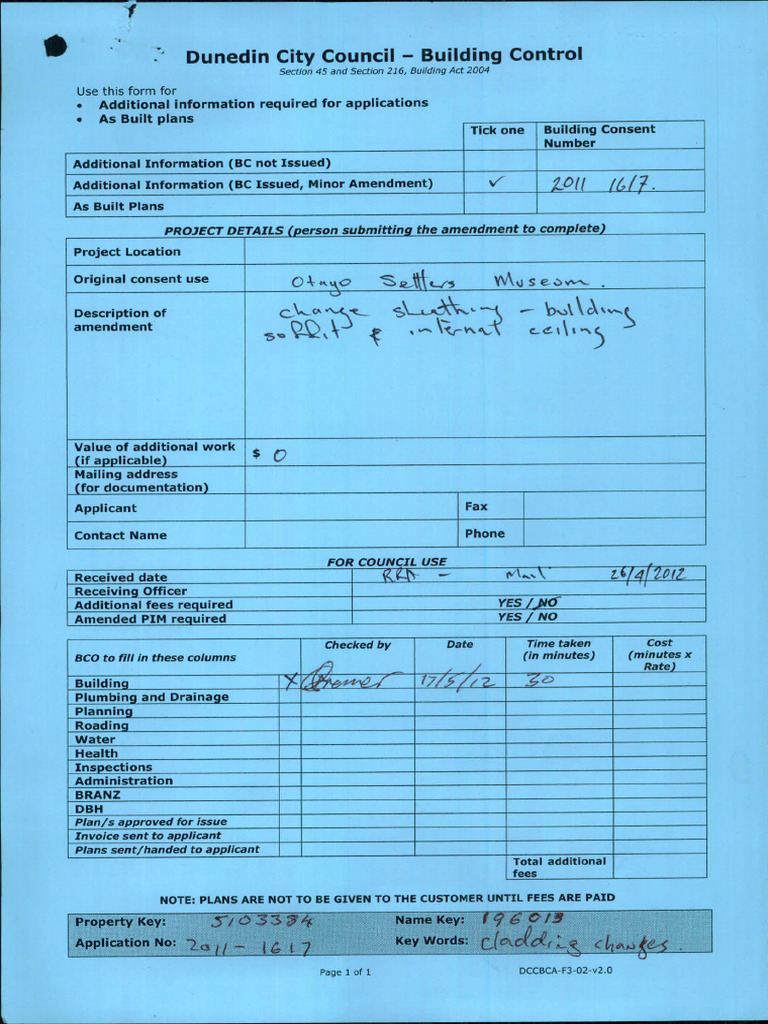 Dunedin City Council – Building Control
Section 45 and Section 216, Building Act 2004
Use this form for
• Additional information required for applications
• As Built plans
Tick one Building Consent Number
Additional Information (BC not Issued)
Additional Information (BC Issued, Minor Amendment) ✓ 2011 1617.
As Built Plans
PROJECT DETAILS (person submitting the amendment to complete)
Project Location
Original consent use Otago Settlers Museum.
Description of amendment change sheathing – building
soffit & internal ceiling
Value of additional work (if applicable) $ 0
Mailing address (for documentation)
Applicant Fax
Contact Name Phone
FOR COUNCIL USE
Received date RRA – Mail 26/4/2012
Receiving Officer
Additional fees required YES / NO
Amended PIM required YES / NO
BCO to fill in these columns Checked by Date Time taken (in minutes) Cost (minutes x Rate)
Building X 17/5/12 30
Plumbing and Drainage
Planning
Roading
Water
Health
Inspections
Administration
BRANZ
DBH
Plan/s approved for issue
Invoice sent to applicant
Plans sent/handed to applicant
Total additional fees
NOTE: PLANS ARE NOT TO BE GIVEN TO THE CUSTOMER UNTIL FEES ARE PAID
Property Key: 5103384 Name Key: 196013
Application No: 2011-1617 Key Words: cladding changes.
Page 1 of 1 DCCBCA-F3-02-v2.0